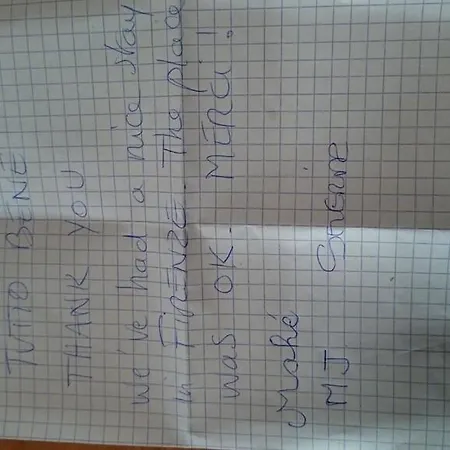 TUTTO BENE
THANK YOU
we've had a nice stay
in FIRENZE. The place
was OK. MERCI!
Mahé
MJ Séverine